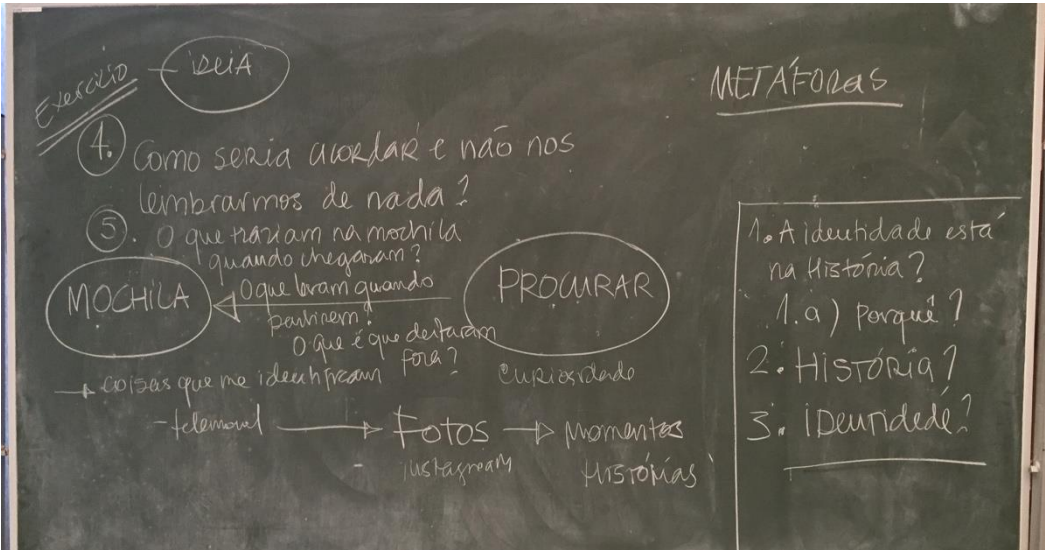 Exercício – iDEIA
METÁFORAS
4. Como seria acordar e não nos
lembrarmos de nada?
5. O que traziam na mochila
quando chegaram?
O que levam quando
partirem?
O que é que deitaram
fora?
MOCHILA
PROCURAR
curiosidade
→ coisas que me identificam
- telemovel → Fotos → Momentos
instagram
Histórias
1. A identidade está
na História?
1.a) Porquê?
2. HISTÓRIA?
3. iDentidade?